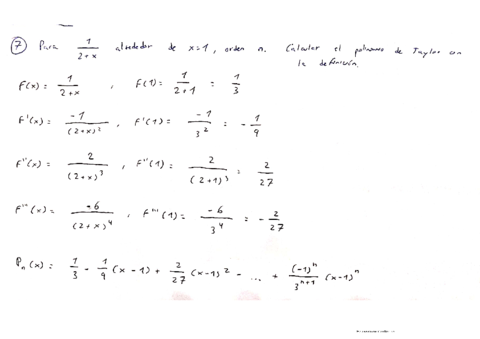 7 Para 1/(2+x) alrededor de x=1, orden n. Calcular el polinomio de Taylor con
la definición.
F(x) = 1/(2+x) , F(1) = 1/(2+1) = 1/3
F'(x) = -1/(2+x)^2 , F'(1) = -1/3^2 = -1/9
F''(x) = 2/(2+x)^3 , F''(1) = 2/(2+1)^3 = 2/27
F'''(x) = -6/(2+x)^4 , F'''(1) = -6/3^4 = -2/27
P_n(x) = 1/3 - 1/9 (x-1) + 2/27 (x-1)^2 - ... + (-1)^n/3^(n+1) (x-1)^n